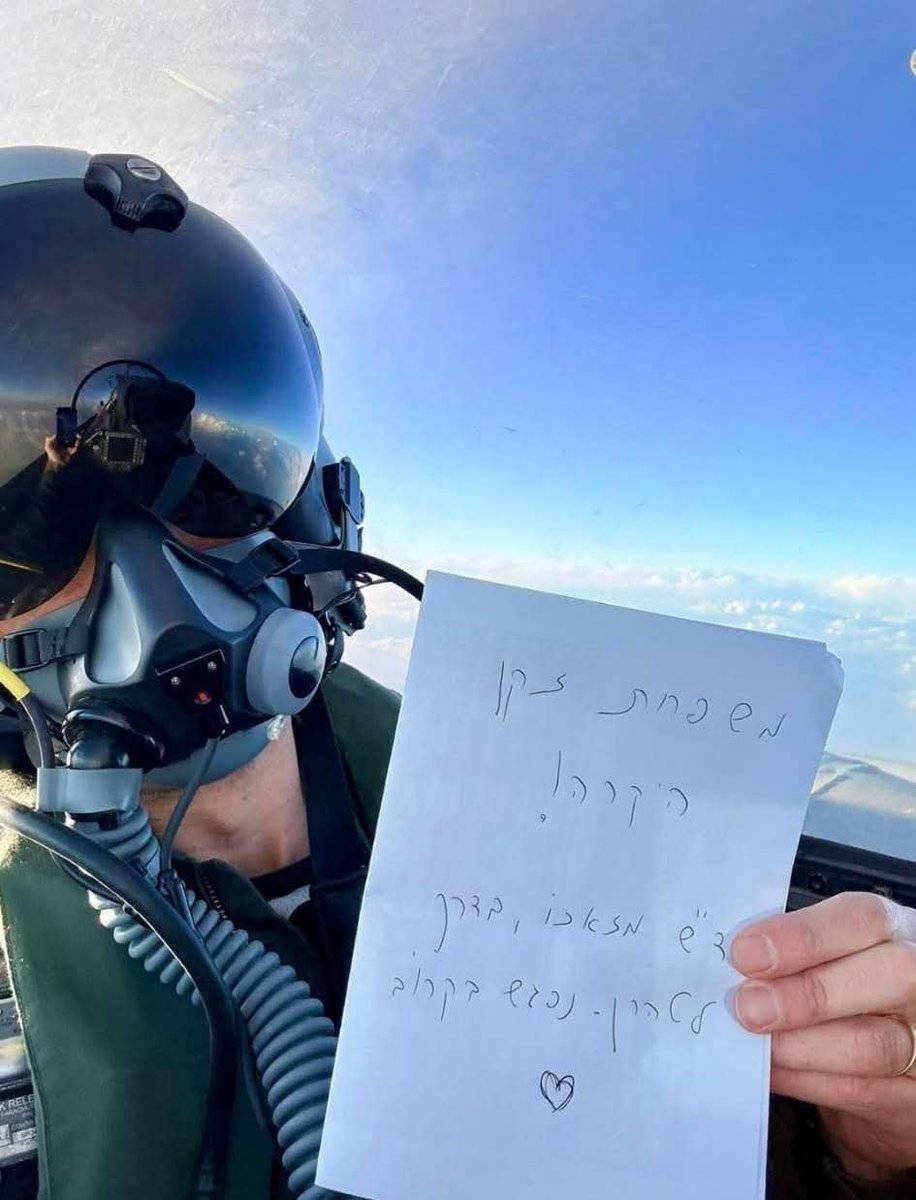 משפחת זקן
היקרה!
ד"ש מזאכו, בדרך
לטהרן. נפגש בקרוב
K RELE